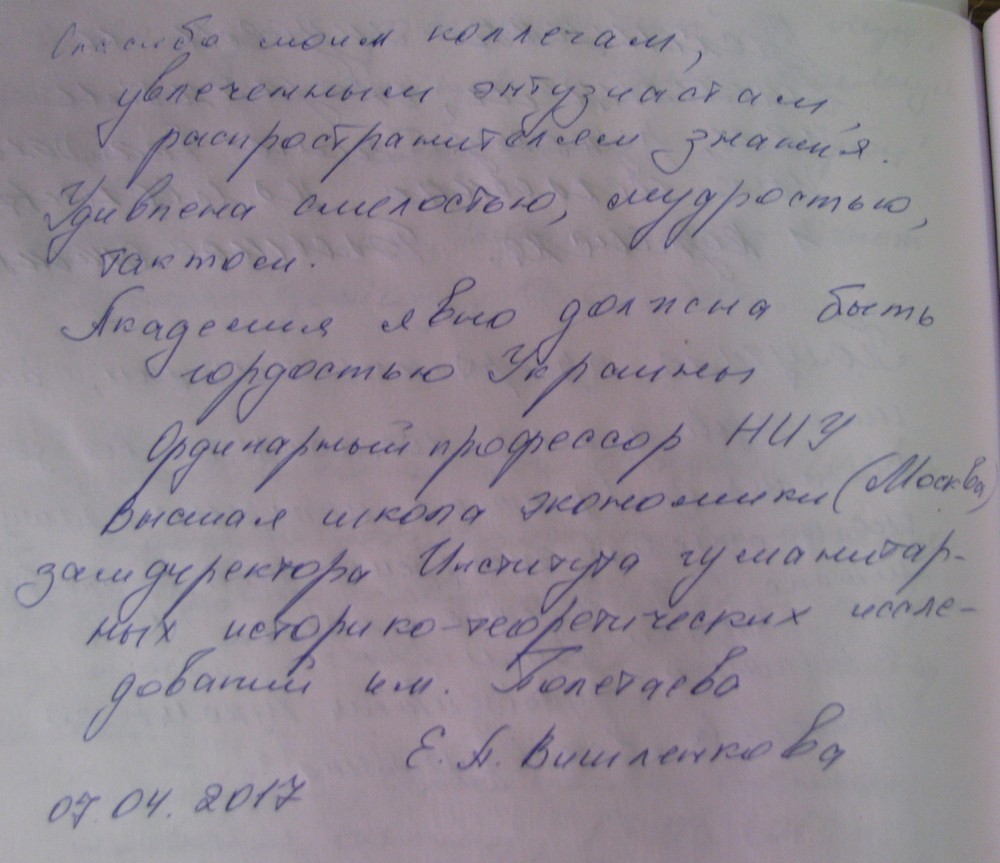 Спасибо моим коллегам,
увлеченным энтузиастам,
распространителям знания.
Удивлена смелостью, мудростью,
тактом.
Академия явно должна быть
гордостью Украины
Ординарный профессор НИУ
Высшая школа экономики (Москва)
замдиректора Института гуманитар-
ных историко-теоретических иссле-
дований им. Полетаева
Е. А. Вишленкова
07.04.2017